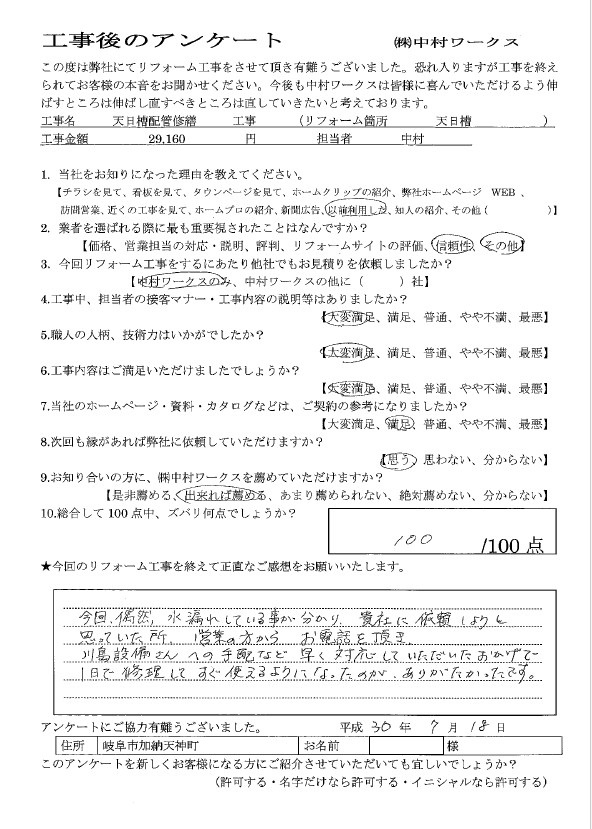 工事後のアンケート　㈱中村ワークス
この度は弊社にてリフォーム工事をさせて頂き有難うございました。恐れ入りますが工事を終え
られてお客様の本音をお聞かせください。今後も中村ワークスは皆様に喜んでいただけるよう伸
ばすところは伸ばし直すべきところは直していきたいと考えております。
工事名　天日槽配管修繕　工事　（リフォーム箇所　天日槽　）
工事金額　29,160　円　担当者　中村
1. 当社をお知りになった理由を教えてください。
【チラシを見て、看板を見て、タウンページを見て、ホームクリップの紹介、弊社ホームページ　WEB 、
訪問営業、近くの工事を見て、ホームプロの紹介、新聞広告、以前利用した、知人の紹介、その他（　）】
2. 業者を選ばれる際に最も重要視されたことはなんですか？
【価格、営業担当の対応・説明、評判、リフォームサイトの評価、信頼性、その他】
3. 今回リフォーム工事をするにあたり他社でもお見積りを依頼しましたか？
【中村ワークスのみ、中村ワークスの他に（　）社】
4.工事中、担当者の接客マナー・工事内容の説明等はありましたか？
【大変満足、満足、普通、やや不満、最悪】
5.職人の人柄、技術力はいかがでしたか？
【大変満足、満足、普通、やや不満、最悪】
6.工事内容はご満足いただけましたでしょうか？
【大変満足、満足、普通、やや不満、最悪】
7.当社のホームページ・資料・カタログなどは、ご契約の参考になりましたか？
【大変満足、満足、普通、やや不満、最悪】
8.次回も縁があれば弊社に依頼していただけますか？
【思う、思わない、分からない】
9.お知り合いの方に、㈱中村ワークスを薦めていただけますか？
【是非薦める、出来れば薦める、あまり薦められない、絶対薦めない、分からない】
10.総合して 100 点中、ズバリ何点でしょうか？
100　/100 点
★今回のリフォーム工事を終えて正直なご感想をお願いいたします。
今回、偶然、水漏れしている事が分かり、貴社に依頼しようと
思っていた所、営業の方から お電話を頂き、
川島設備さんへの手配など 早く対応していただいたおかげで
1日で修理して すぐ使えるようになったのが、ありがたかったです。
アンケートにご協力有難うございました。　平成 30 年 7 月 18 日
住所　岐阜市加納天神町　お名前　様
このアンケートを新しくお客様になる方にご紹介させていただいても宜しいでしょうか？
（許可する・名字だけなら許可する・イニシャルなら許可する）